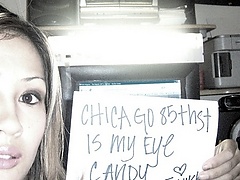 CHICAGO 85thst
IS MY EYE
CANDY